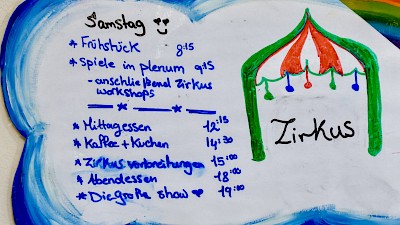 Samstag
* Frühstück 8:15
* Spiele im plenum 9:15
- anschließend Zirkus
workshops
* Mittagessen 12:15
* Kaffee + Kuchen 14:30
* Zirkus vorbereitungen 15:00
* Abendessen 18:00
* Die große Show ♥ 19:00
Zirkus